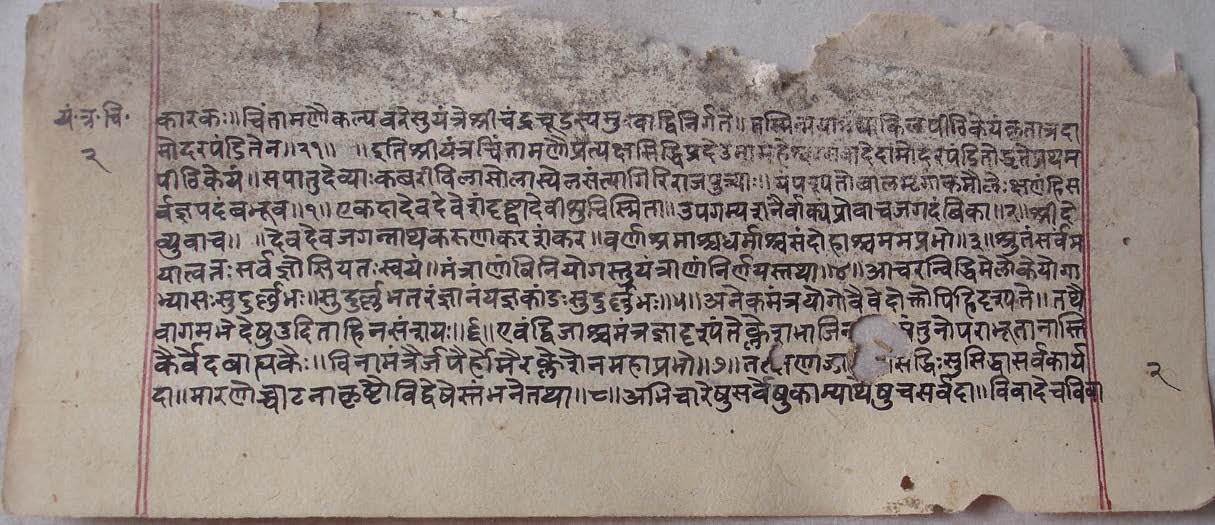 यं॰ त्र॰ चि॰
२
कारकः॥ चिंतामणौकल्पवरेसुयंत्रेश्रीचंद्रचूडस्यमुखाद्विनिर्गते॥ तस्मिन् किलपीठिकेयंकृतात्रदा
मोदरपंडितेन॥२१॥ ॥इतिश्रीयंत्रचिंतामणौप्रत्यक्षसिद्धिप्रदेउमामहेश्वर दामोदरपंडितोद्धृतेप्रथम
पीठिकेयं॥ सपातुदेव्याःकबरीविलासोलास्येलसंत्यागिरिराजपुत्र्याः॥ बालमृगांकमौलेःक्षणंहिस
र्वज्ञपदंबभूव॥१॥ एकदादेवदेवेशंदृष्ट्वादेवीशुचिस्मिता॥ उपगम्यशनैर्वाक्यंप्रोवाचजगदंबिका॥२॥ श्रीदे
व्युवाच॥ ॥देवदेवजगन्नाथकरुणाकरशंकर॥ वर्णाश्रमाश्चधर्माश्चसंदोहाश्चममप्रभो॥३॥ श्रुतंसर्वम
यात्वत्तःसर्वज्ञोसियतःस्वयं॥ मंत्राणांविनियोगस्तुयंत्राणांनिर्णयस्तथा॥४॥ आचरन्सिद्धिमेलोकेयोगा
भ्यासःसुदुर्ल्लभः॥ सुदुर्ल्लभतरंज्ञानंयज्ञकांडःसुदुर्ल्लभः॥५॥ अनेकमंत्रयोगोवैवेदोक्तोपिहिदृश्यते॥ तथै
वागमभेदेषुउदिताहिनसंशयः॥६॥ एवंद्विजाश्चमंत्रज्ञादृश्यंते तुनोपराभूतानास्ति
कैर्वेदबाह्यकैः॥ विनामंत्रैर्जपैर्होमैरक्लैशेनमहाप्रभो॥७॥ सिद्धिःसुसिद्धासर्वकार्य
२
दा॥ मारणोच्चाटनाकृष्टौविद्वेषेस्तंभनेतथा॥८॥ अभिचारेषुसर्वेषुकाम्यार्थेषुचसर्वदा॥ विवादेचविवा